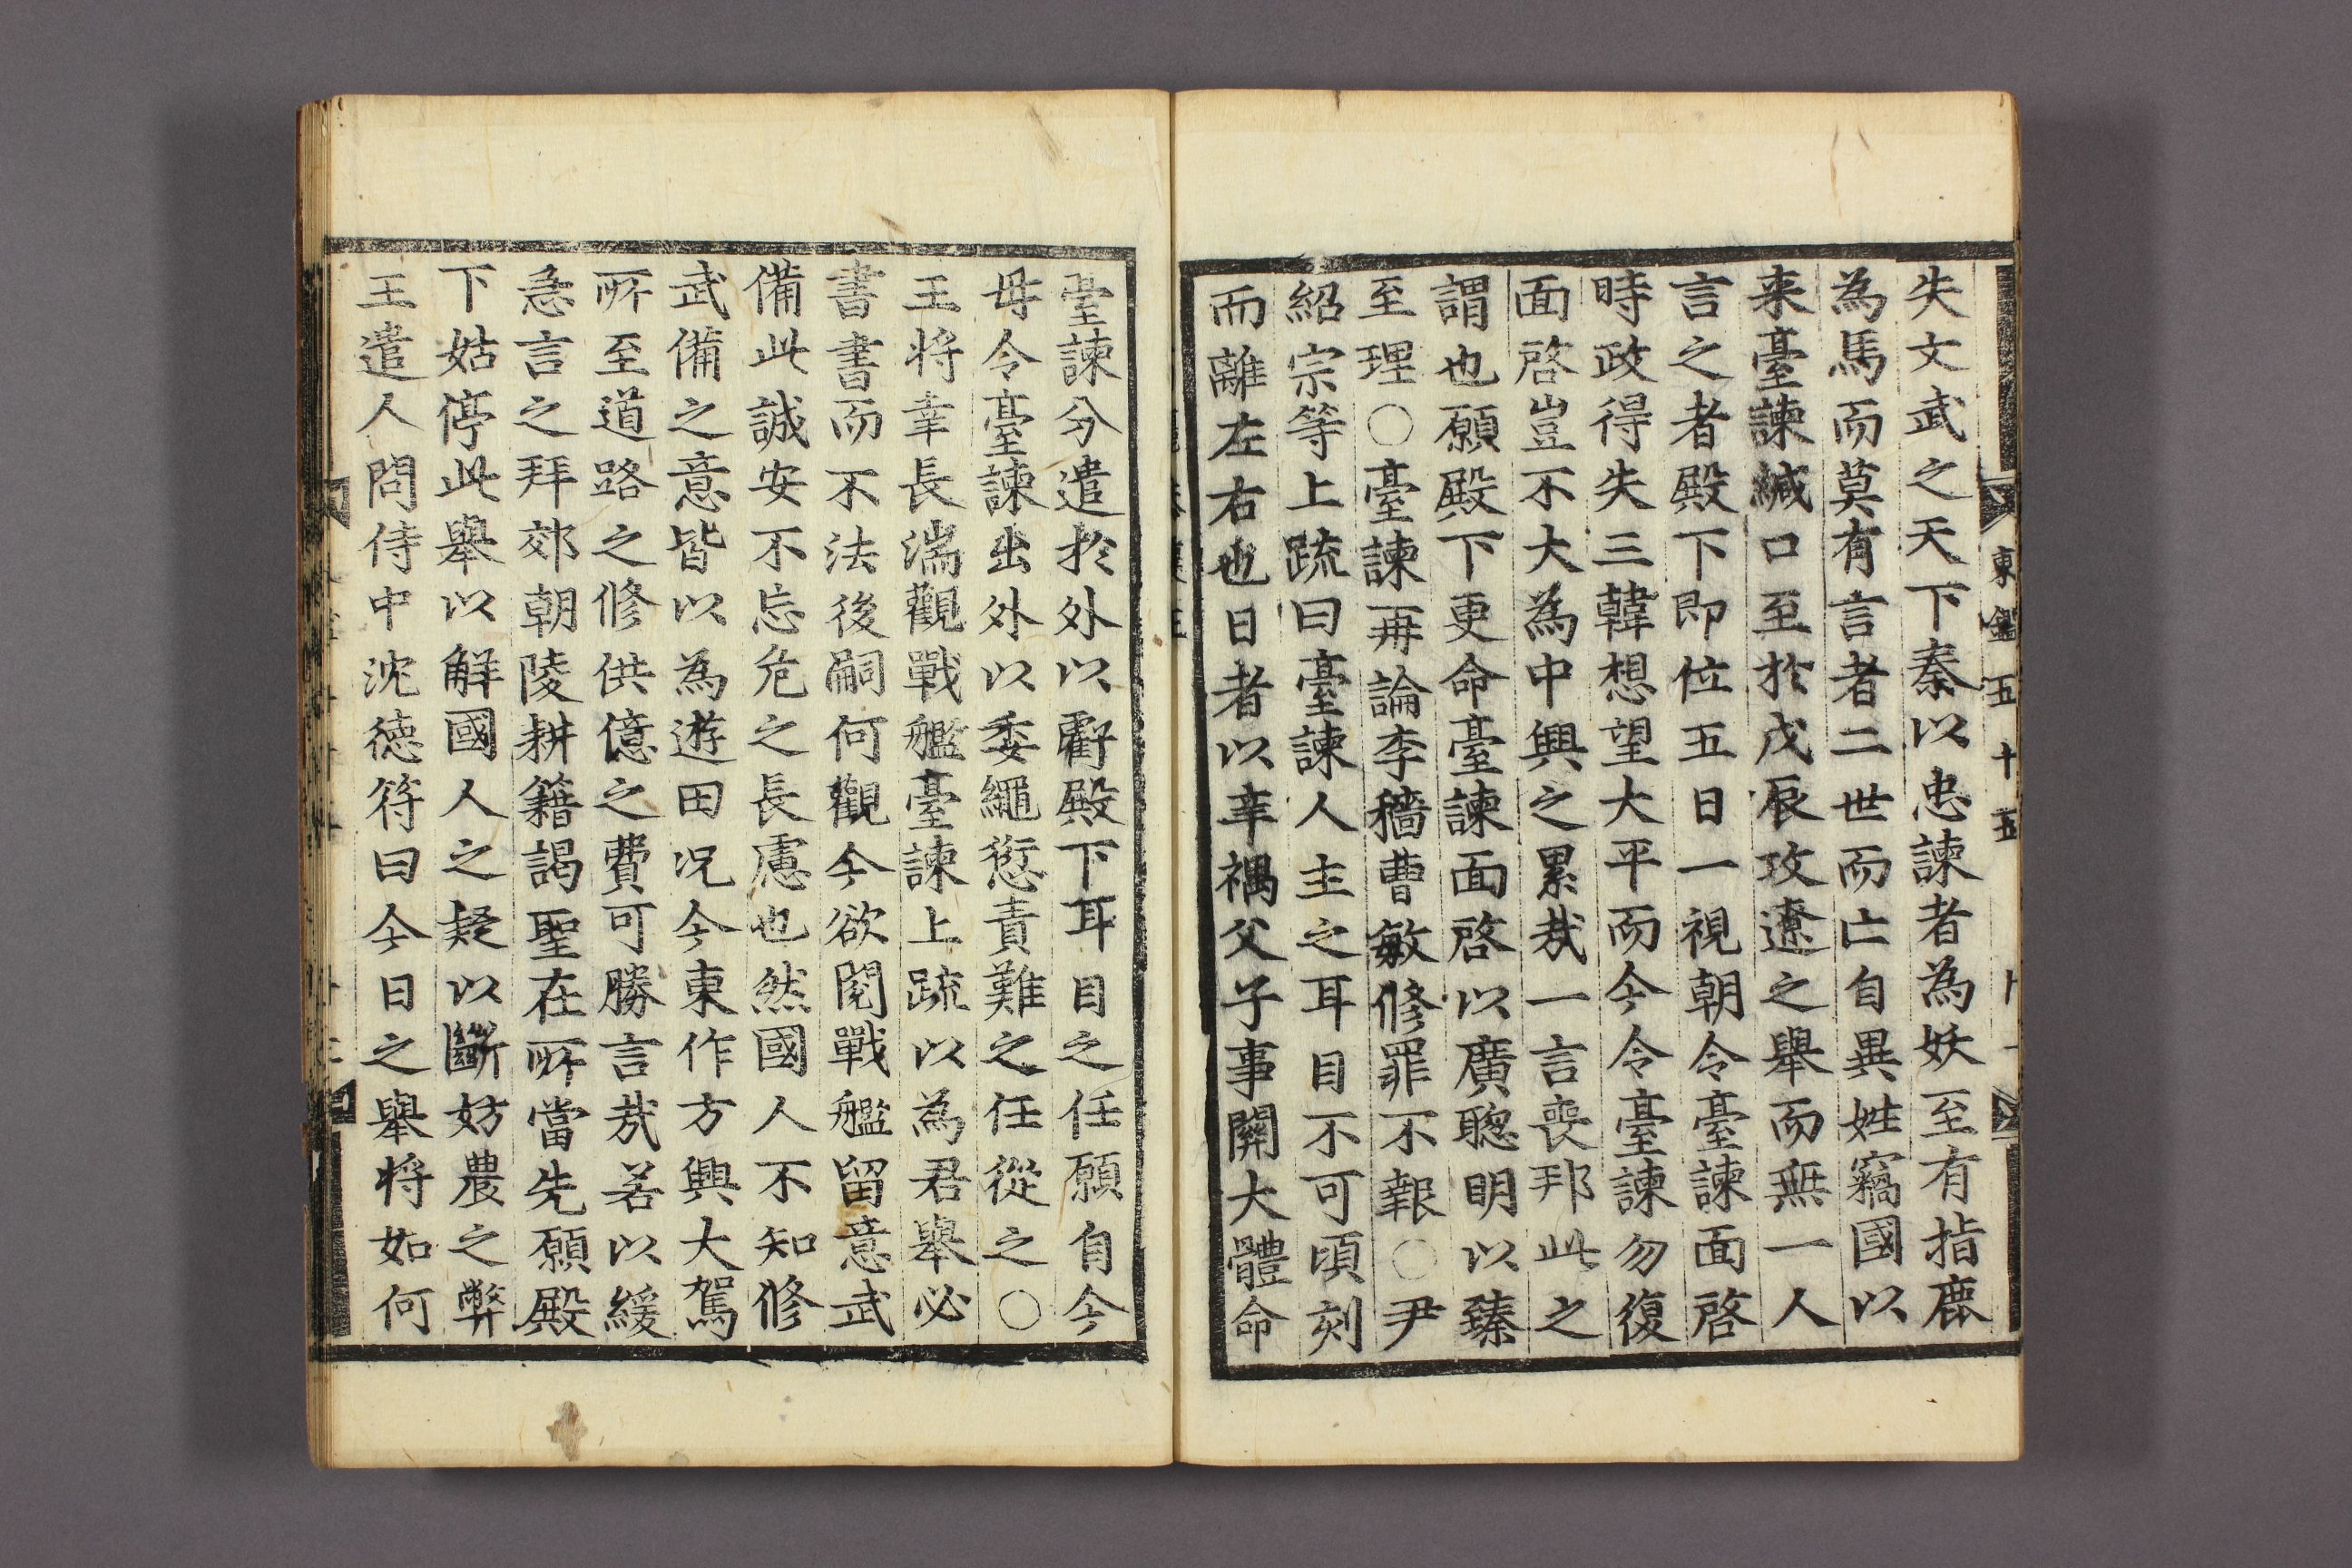 東鑑五十五
失文武之天下秦以忠諫者為妖至有指鹿
為馬而莫有言者二世而亡自異姓竊國以
来臺諫緘口至扵戊辰攻遼之舉而無一人
言之者殿下即位五日一視朝令臺諫面啓
時政得失三韓想望大平而今令臺諫勿復
面啓豈不大為中興之累㢤一言喪邦此之
謂也願殿下更命臺諫面啓以廣聦明以臻
至理○臺諫再論李穡曹敏修罪不報○尹
紹宗等上疏曰臺諫人主之耳目不可頃刻
而離左右也日者以辛禑父子事關大體命
臺諫分遣扵外以霧殿下耳目之任願自今
毋令臺諫出外以委繩愆責難之任從之○
王将幸長湍觀戰艦臺諫上疏以為君舉必
書書而不法後嗣何觀今欲閱戰艦留意武
備此誠安不忘危之長慮也然國人不知修
武備之意皆以為遊田况今東作方興大駕
所至道路之修供億之費可勝言㢤若以緩
急言之拜郊朝陵耕籍謁聖在所當先願殿
下姑停此舉以解國人之疑以斷妨農之弊
王遣人問侍中沈徳符曰今日之舉将如何